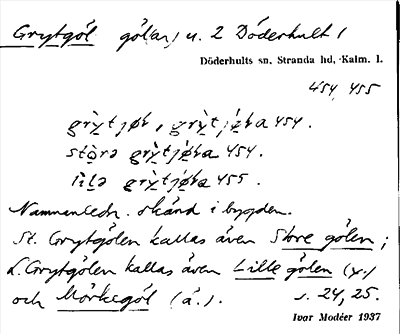 Grytgöl göl(ar) u. 2 Döderhult 1
Döderhults sn. Stranda hd, Kalm. l.
454, 455
454.
454.
455.
Namnanledn. okänd i bygden.
St. Grytgölen kallas även Store gölen;
L. Grytgölen kallas även Lille gölen (y.)
och Mörkegöl (ä.). s. 24, 25.
Ivar Modéer 1937